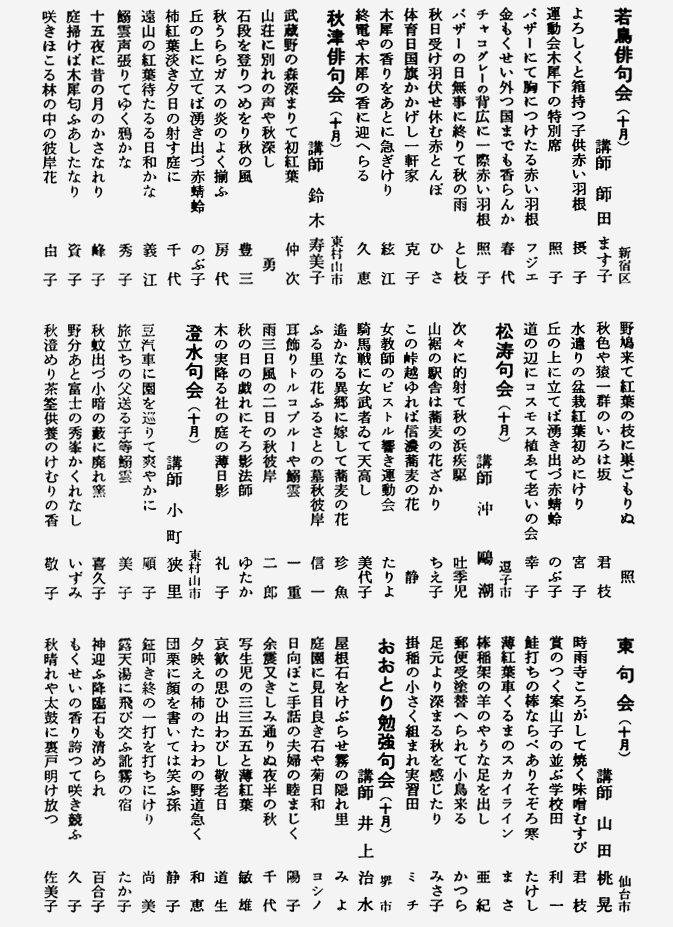 若鳥俳句会（十月）
新宿区
講師　師田　ます子
よろしくと箱持つ子供赤い羽根　摂子
運動会木犀下の特別席　照子
バザーにて胸につけたる赤い羽根　フジエ
金もくせい外つ国までも香らんか　春代
チャコグレーの背広に一際赤い羽根　照子
バザーの日無事に終りて秋の雨　とし枝
秋日受け羽伏せ休む赤とんぼ　ひさ
体育日国旗かかげし一軒家　克子
木犀の香りをあとに急ぎけり　絃江
終電や木犀の香に迎へらる　久恵
秋津俳句会（十月）
東村山市
講師　鈴木　寿美子
武蔵野の森深まりて初紅葉　仲次
山荘に別れの声や秋深し　勇
石段を登りつめをり秋の風　豊三
秋うららガスの炎のよく揃ふ　房代
丘の上に立てば湧き出づ赤蜻蛉　のぶ子
柿紅葉淡き夕日の射す庭に　千代
遠山の紅葉待たるる日和かな　義江
鰯雲声張りてゆく鴉かな　秀子
十五夜に昔の月のかさなれり　峰子
庭掃けば木犀匂ふあしたなり　資子
咲きほこる林の中の彼岸花　由子
野鳩来て紅葉の枝に巣ごもりぬ　照
秋色や猿一群のいろは坂　君枝
水遣りの盆栽紅葉初めにけり　宮子
丘の上に立てば湧き出づ赤蜻蛉　のぶ子
道の辺にコスモス植ゑて老いの会　幸子
松涛句会（十月）
逗子市
講師　沖　鷗潮
次々に的射て秋の浜疾駆　吐季児
山裾の駅舎は蕎麦の花ざかり　ちえ子
この峠越ゆれば信濃蕎麦の花　静
女教師のピストル響き運動会　たりよ
騎馬戦に女武者ゐて天高し　美代子
遙かなる異郷に嫁して蕎麦の花　珍魚
ふる里の花ふるさとの墓秋彼岸　信一
耳飾りトルコブルーや鰯雲　一重
雨三日風の二日の秋彼岸　二郎
秋の日の戯れにそろ影法師　ゆたか
木の実降る社の庭の薄日影　礼子
澄水句会（十月）
東村山市
講師　小町　狭里
豆汽車に園を巡りて爽やかに　順子
旅立ちの父送る子等鰯雲　美子
秋蚊出づ小暗の藪に廃れ窯　喜久子
野分あと富士の秀峯かくれなし　いずみ
秋渟めり茶筌供養のけむりの香　敬子
東句会（十月）
仙台市
講師　山田　桃晃
時雨寺ころがして焼く味噌むすび　君枝
賞のつく案山子の並ぶ学校田　利一
鮭打ちの棒ならべありそぞろ寒　たけし
薄紅葉車くるまのスカイライン　まさ
棒稲架の羊のやうな足を出し　亜紀
郵便受塗替へられて小鳥来る　かつら
足元より深まる秋を感じたり　みさ子
掛稲の小さく組まれ実習田　ミチ
おおとり勉強句会（十月）
堺市
講師　井上　治水
屋根石をけぶらせ霧の隠れ里　みよ
庭園に見目良き石や菊日和　ヨシノ
日向ぼこ手話の夫婦の睦まじく　陽子
余震又きしみ通りぬ夜半の秋　千代
写生児の三三五五と薄紅葉　敏雄
哀歓の思ひ出わびし敬老日　道生
夕映えの柿のたわわの野道急く　和恵
団栗に顔を書いては笑ふ孫　静子
鉦叩き終の一打を打ちにけり　尚美
露天湯に飛び交ふ訛霧の宿　たか子
神迎ふ降臨石も清められ　百合子
もくせいの香り誇つて咲き競ふ　久子
秋晴れや太鼓に裏戸明け放つ　佐美子